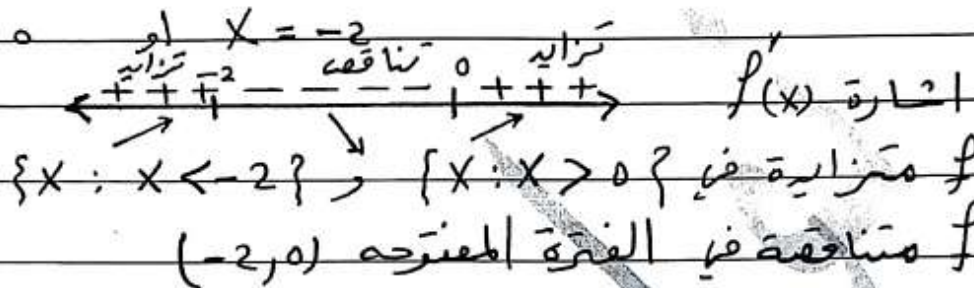 0 او X = -2
تزايد تناقص تزايد
+ + + -2 - - - - - 0 + + + اشارة f'(x)
f متزايدة في {x : x > 0} و {x : x < -2}
f متناقصة في الفترة المفتوحه (-2, 0)